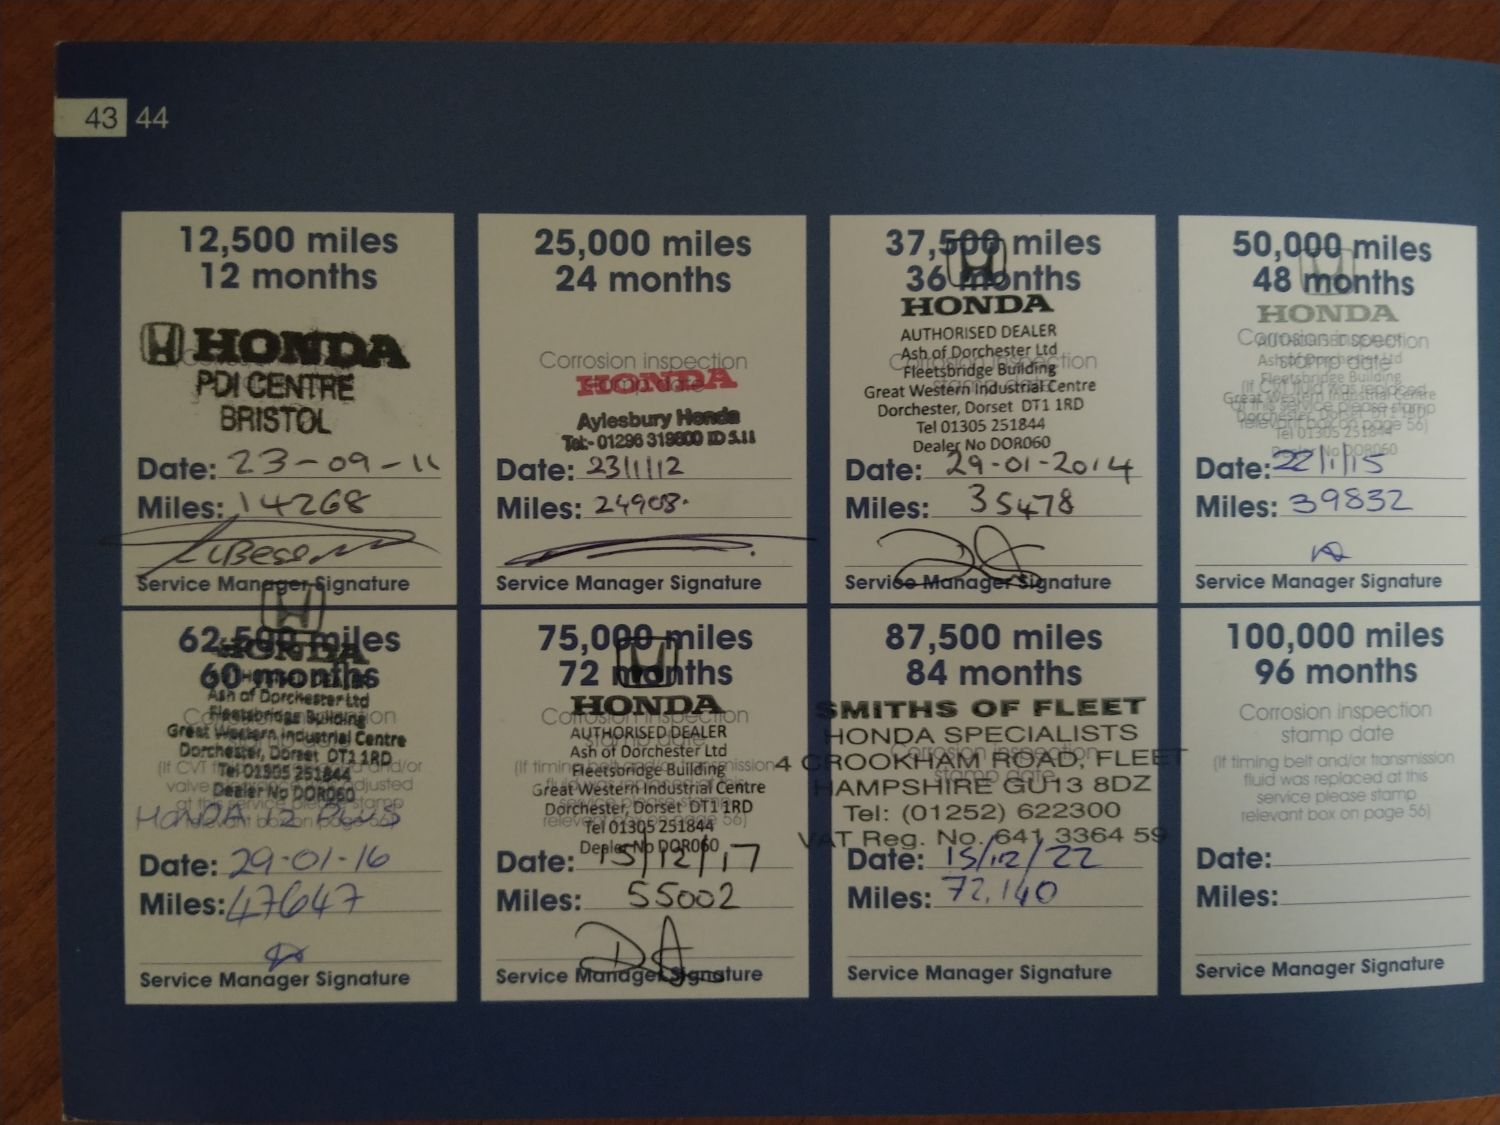 43 44
12,500 miles
12 months
HONDA
PDI CENTRE
BRISTOL
Date: 23-09-11
Miles: 14268
Service Manager Signature
25,000 miles
24 months
Corrosion inspection
stamp date
HONDA
Aylesbury Honda
Tel:- 01296 319800 ID 5.11
Date: 23/1/12
Miles: 24908.
Service Manager Signature
37,500 miles
36 months
HONDA
AUTHORISED DEALER
Ash of Dorchester Ltd
Corrosion inspection
Fleetsbridge Building
stamp date
Great Western Industrial Centre
Dorchester, Dorset DT1 1RD
Tel 01305 251844
Dealer No DOR060
Date: 29-01-2014
Miles: 35478
Service Manager Signature
50,000 miles
48 months
HONDA
Corrosion inspection
AUTHORISED DEALER
stamp date
Ash of Dorchester Ltd
Fleetsbridge Building
(If CVT fluid was replaced
Great Western Industrial Centre
at this service please stamp
Dorchester, Dorset DT1 1RD
relevant box on page 56)
Tel 01305 251844
Dealer No DOR060
Date: 22/1/15
Miles: 39832
Service Manager Signature
62,500 miles
HONDA
60 months
Ash of Dorchester Ltd
Fleetsbridge Building
Great Western Industrial Centre
Dorchester, Dorset DT1 1RD
Tel 01305 251844
Dealer No DOR060
at this service please stamp
HONDA 12 PLUS
relevant box on page 56)
Date: 29-01-16
Miles: 47647
Service Manager Signature
75,000 miles
72 months
HONDA
Corrosion inspection
AUTHORISED DEALER
stamp date
Ash of Dorchester Ltd
(If timing belt and/or transmission
Fleetsbridge Building
fluid was replaced at this
Great Western Industrial Centre
service please stamp
Dorchester, Dorset DT1 1RD
relevant box on page 56)
Tel 01305 251844
Dealer No DOR060
Date: 15/12/17
Miles: 55002
Service Manager Signature
87,500 miles
84 months
SMITHS OF FLEET
HONDA SPECIALISTS
Corrosion inspection
4 CROOKHAM ROAD, FLEET
stamp date
HAMPSHIRE GU13 8DZ
Tel: (01252) 622300
VAT Reg. No. 641 3364 59
Date: 15/12/22
Miles: 72,140
Service Manager Signature
100,000 miles
96 months
Corrosion inspection
stamp date
(If timing belt and/or transmission
fluid was replaced at this
service please stamp
relevant box on page 56)
Date:
Miles:
Service Manager Signature